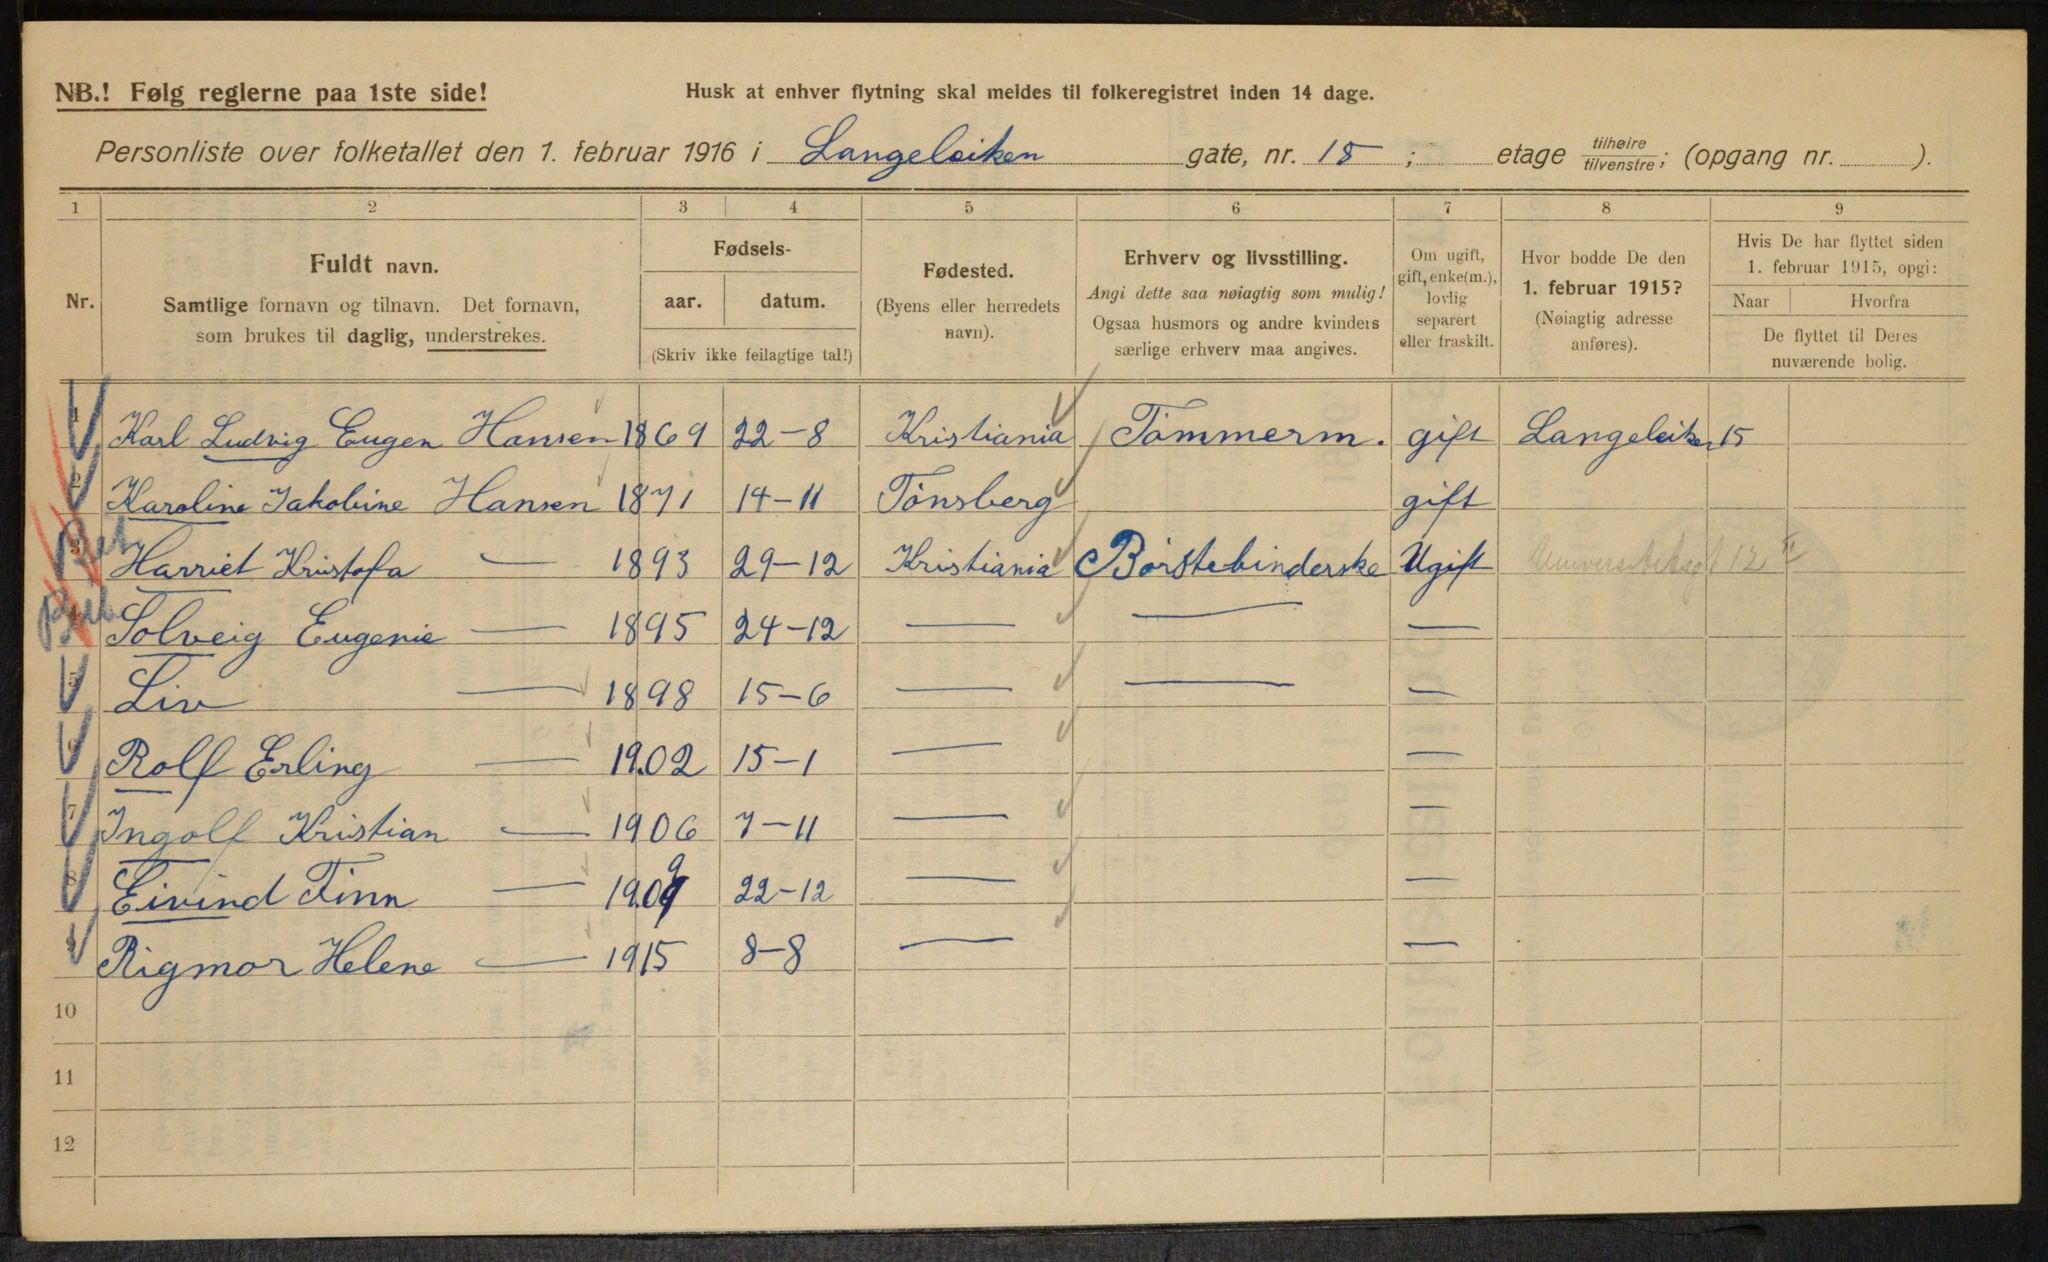 NB.! Følg reglerne paa 1ste side!
Husk at enhver flytning skal meldes til folkeregistret inden 14 dage.
Personliste over folketallet den 1. februar 1916 i Langeleiken gate, nr. 15 ; etage tilhøire/tilvenstre; (opgang nr. ).
1 2 3 4 5 6 7 8 9
Nr.
Fuldt navn.
Samtlige fornavn og tilnavn. Det fornavn,
som brukes til daglig, understrekes.
Fødsels-
aar. datum.
(Skriv ikke feilagtige tal!)
Fødested.
(Byens eller herredets
navn).
Erhverv og livsstilling.
Angi dette saa nøiagtig som mulig!
Ogsaa husmors og andre kvinders
særlige erhverv maa angives.
Om ugift,
gift, enke(m.),
lovlig
separert
eller fraskilt.
Hvor bodde De den
1. februar 1915?
(Nøiagtig adresse
anføres).
Hvis De har flyttet siden
1. februar 1915, opgi:
Naar Hvorfra
De flyttet til Deres
nuværende bolig.
1 Karl Ludvig Eugen Hansen 1869 22-8 Kristiania Tømmerm. gift Langeleiken 15
2 Karoline Jakobine Hansen 1871 14-11 Tønsberg gift
3 Harriet Kristofa — 1893 29-12 Kristiania Børstebinderske Ugift Universitetsgt 12 II
4 Solveig Eugenie — 1895 24-12 — — —
5 Liv — 1898 15-6 — — —
6 Rolf Erling — 1902 15-1 — —
7 Ingolf Kristian — 1906 7-11 — —
8 Eivind Finn — 1909 22-12 — —
9 Rigmor Helene — 1915 8-8 — —
10
11
12